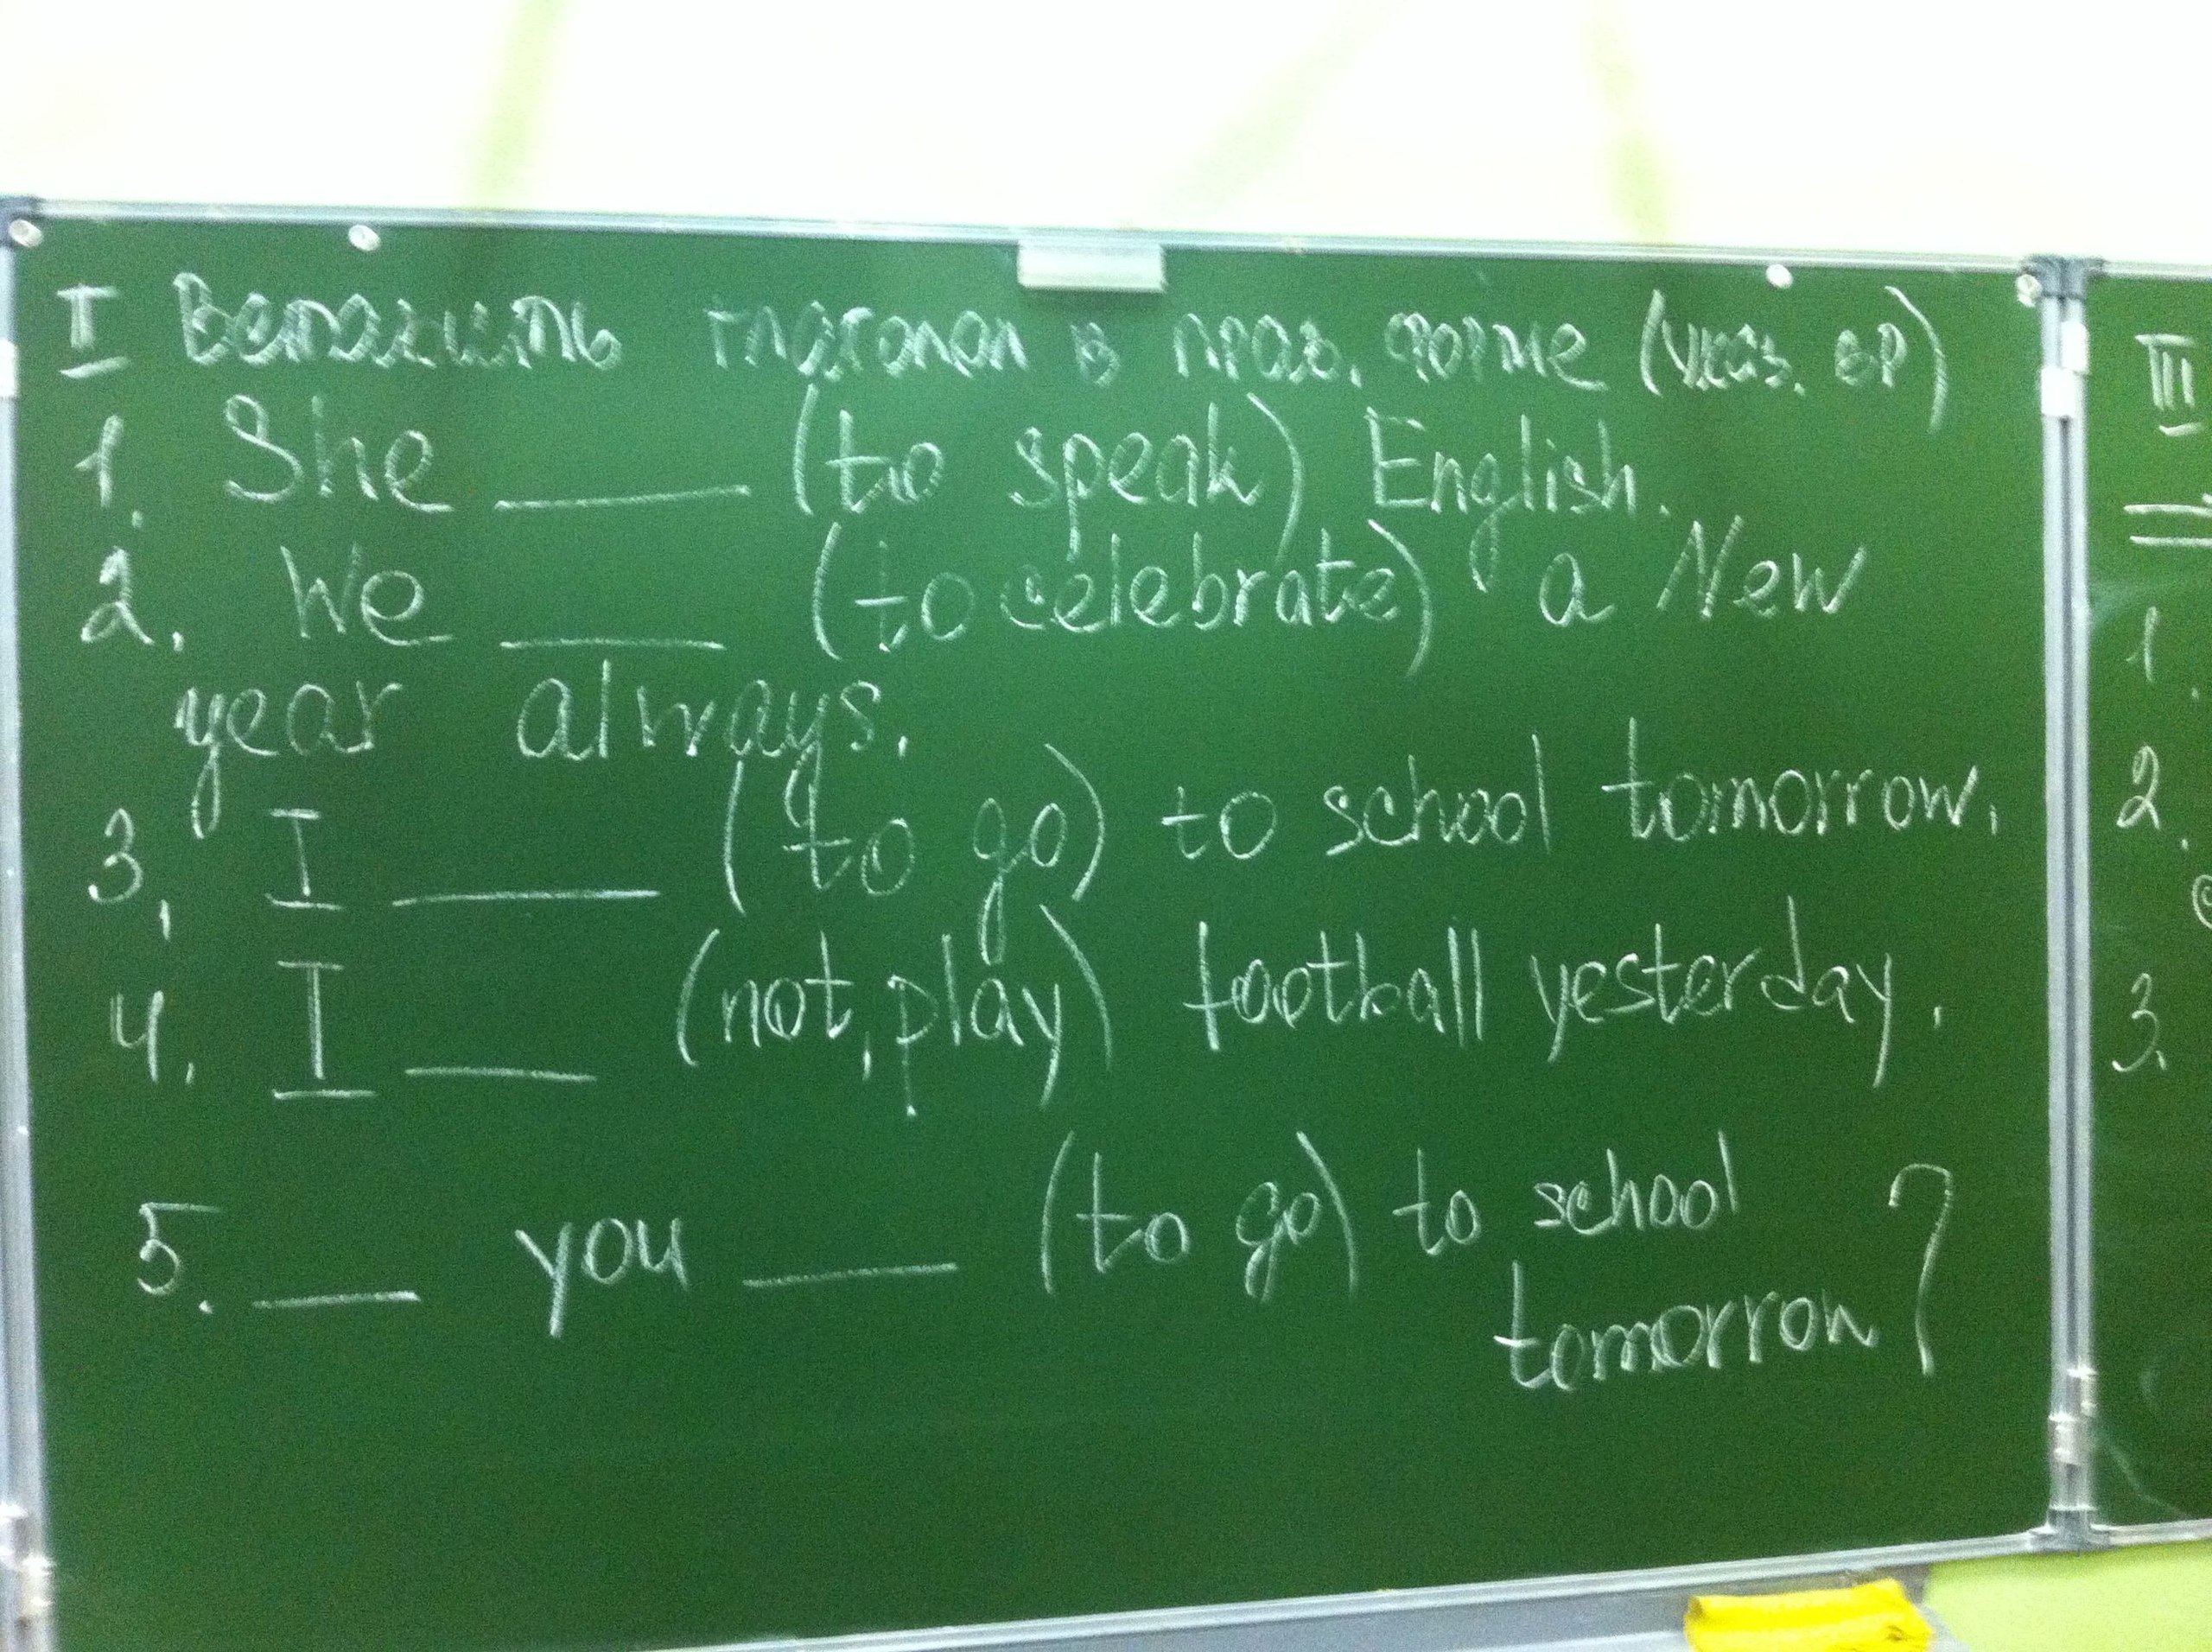 I Вставить глагол в прав. форме (указ. вр)
1. She ____ (to speak) English.
2. We ____ (to celebrate) a New
year always.
3. I ____ (to go) to school tomorrow.
4. I ____ (not, play) football yesterday.
5. ____ you ____ (to go) to school
tomorrow ?
III
1.
2.
3.